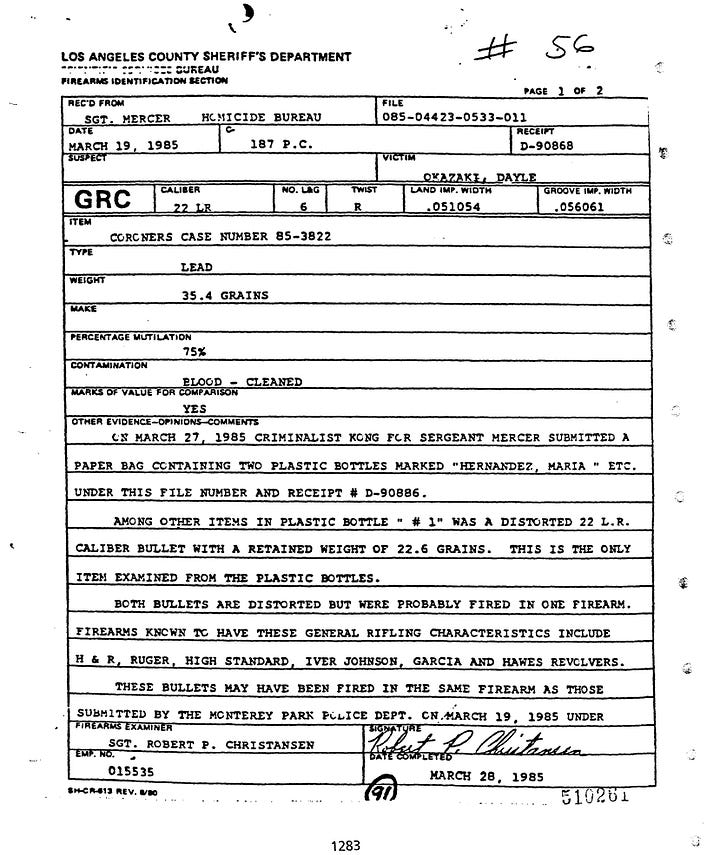 # 56
LOS ANGELES COUNTY SHERIFF'S DEPARTMENT
BUREAU
FIREARMS IDENTIFICATION SECTION
PAGE 1 OF 2
REC'D FROM
SGT. MERCER HOMICIDE BUREAU
FILE
085-04423-0533-011
DATE
MARCH 19, 1985
C-
187 P.C.
RECEIPT
D-90868
SUSPECT
VICTIM
OKAZAKI, DAYLE
GRC
CALIBER
22 LR
NO. L&G
6
TWIST
R
LAND IMP. WIDTH
.051054
GROOVE IMP. WIDTH
.056061
ITEM
CORONERS CASE NUMBER 85-3822
TYPE
LEAD
WEIGHT
35.4 GRAINS
MAKE
PERCENTAGE MUTILATION
75%
CONTAMINATION
BLOOD - CLEANED
MARKS OF VALUE FOR COMPARISON
YES
OTHER EVIDENCE-OPINIONS-COMMENTS
ON MARCH 27, 1985 CRIMINALIST KONG FOR SERGEANT MERCER SUBMITTED A
PAPER BAG CONTAINING TWO PLASTIC BOTTLES MARKED "HERNANDEZ, MARIA " ETC.
UNDER THIS FILE NUMBER AND RECEIPT # D-90886.
AMONG OTHER ITEMS IN PLASTIC BOTTLE " # 1" WAS A DISTORTED 22 L.R.
CALIBER BULLET WITH A RETAINED WEIGHT OF 22.6 GRAINS. THIS IS THE ONLY
ITEM EXAMINED FROM THE PLASTIC BOTTLES.
BOTH BULLETS ARE DISTORTED BUT WERE PROBABLY FIRED IN ONE FIREARM.
FIREARMS KNOWN TO HAVE THESE GENERAL RIFLING CHARACTERISTICS INCLUDE
H & R, RUGER, HIGH STANDARD, IVER JOHNSON, GARCIA AND HAWES REVOLVERS.
THESE BULLETS MAY HAVE BEEN FIRED IN THE SAME FIREARM AS THOSE
SUBMITTED BY THE MONTEREY PARK POLICE DEPT. ON MARCH 19, 1985 UNDER
FIREARMS EXAMINER
SGT. ROBERT P. CHRISTANSEN
SIGNATURE
Robert P. Christansen
EMP. NO.
015535
DATE COMPLETED
MARCH 28, 1985
SH-CR-613 REV. 8/80
91
510261
1283